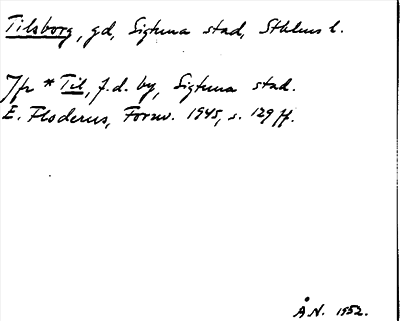 Tilsborg, gd, Sigtuna stad, Sthlms l.
Jfr *Til, f.d. by, Sigtuna stad.
E. Floderus, Fornv. 1945, s. 129 ff.
Å N. 1952.